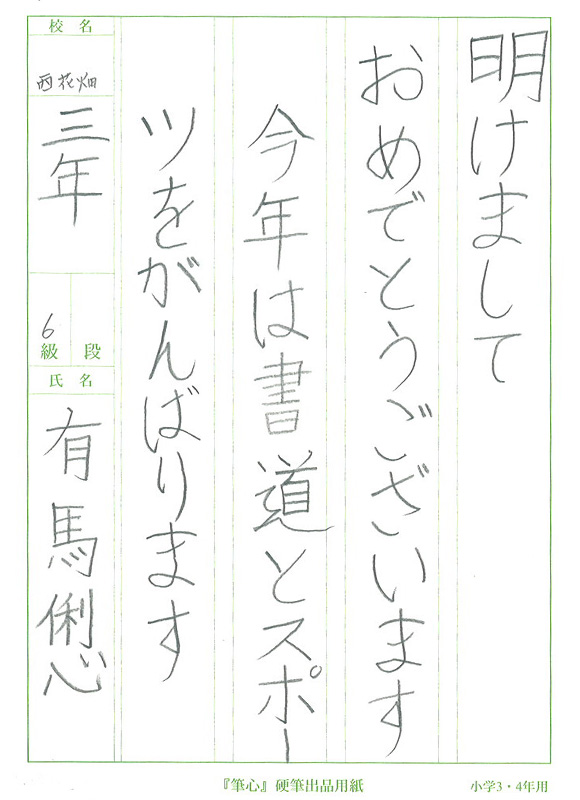 明けまして
おめでとうございます
今年は書道とスポー
ツをがんばります
校名
西花畑
三年
6
級
段
氏名
有馬俐心
『筆心』硬筆出品用紙
小学3・4年用